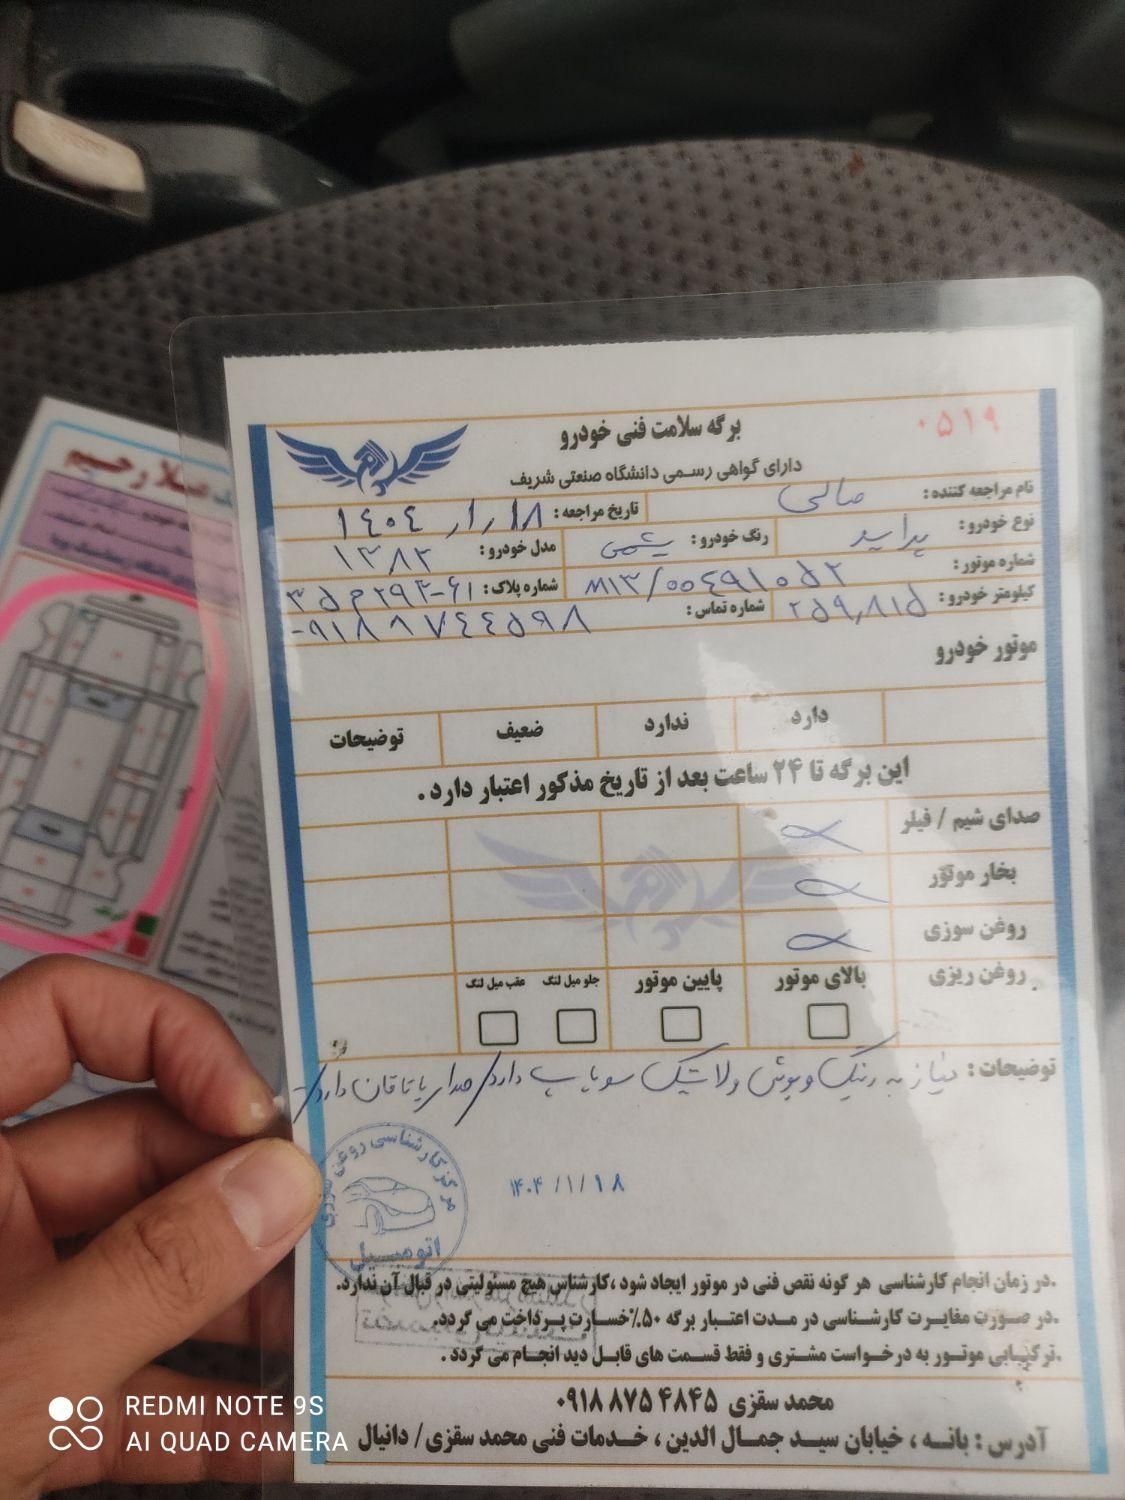 برگه سلامت فنی خودرو
۰۵۱۹
دارای گواهی رسمی دانشگاه صنعتی شریف
نام مراجعه کننده : صالحی
تاریخ مراجعه : ۱۴۰۴/۱/۱۸
نوع خودرو : پراید
رنگ خودرو : یشمی
مدل خودرو : ۱۳۸۲
شماره موتور : M13/00491052
شماره پلاک : ۶۱-۲۹۳م۳۵
کیلومتر خودرو : ۲۵۹,۸۱۵
شماره تماس : ۰۹۱۸۸۷۴۴۵۹۸
موتور خودرو
دارد ندارد ضعیف توضیحات
این برگه تا ۲۴ ساعت بعد از تاریخ مذکور اعتبار دارد .
صدای شیم / فیلر
بخار موتور
روغن سوزی
روغن ریزی بالای موتور پایین موتور جلو میل لنگ عقب میل لنگ
توضیحات : نیاز به رینگ و بوش و لاستیک سوپاپ دارد/صدای یاتاقان دارد/
مرکز کارشناسی روغن سوزی
اتومبیل
۱۴۰۴/۱/۱۸
.در زمان انجام کارشناسی هر گونه نقص فنی در موتور ایجاد شود ،کارشناس هیچ مسئولیتی در قبال آن ندارد.
.در صورت مغایرت کارشناسی در مدت اعتبار برگه ۵۰٪خسارت پرداخت می گردد.
.ترکیابی موتور به درخواست مشتری و فقط قسمت های قابل دید انجام می گردد .
محمد سقزی ۴۸۴۵ ۸۷۵ ۰۹۱۸
آدرس : بانه ، خیابان سید جمال الدین ، خدمات فنی محمد سقزی / دانیال
REDMI NOTE 9S
AI QUAD CAMERA